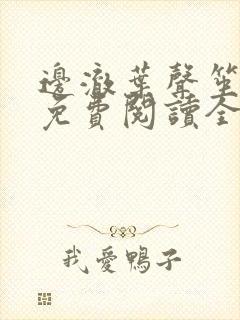 邊澈葉聲笙
免費閱讀全
我愛鴨子